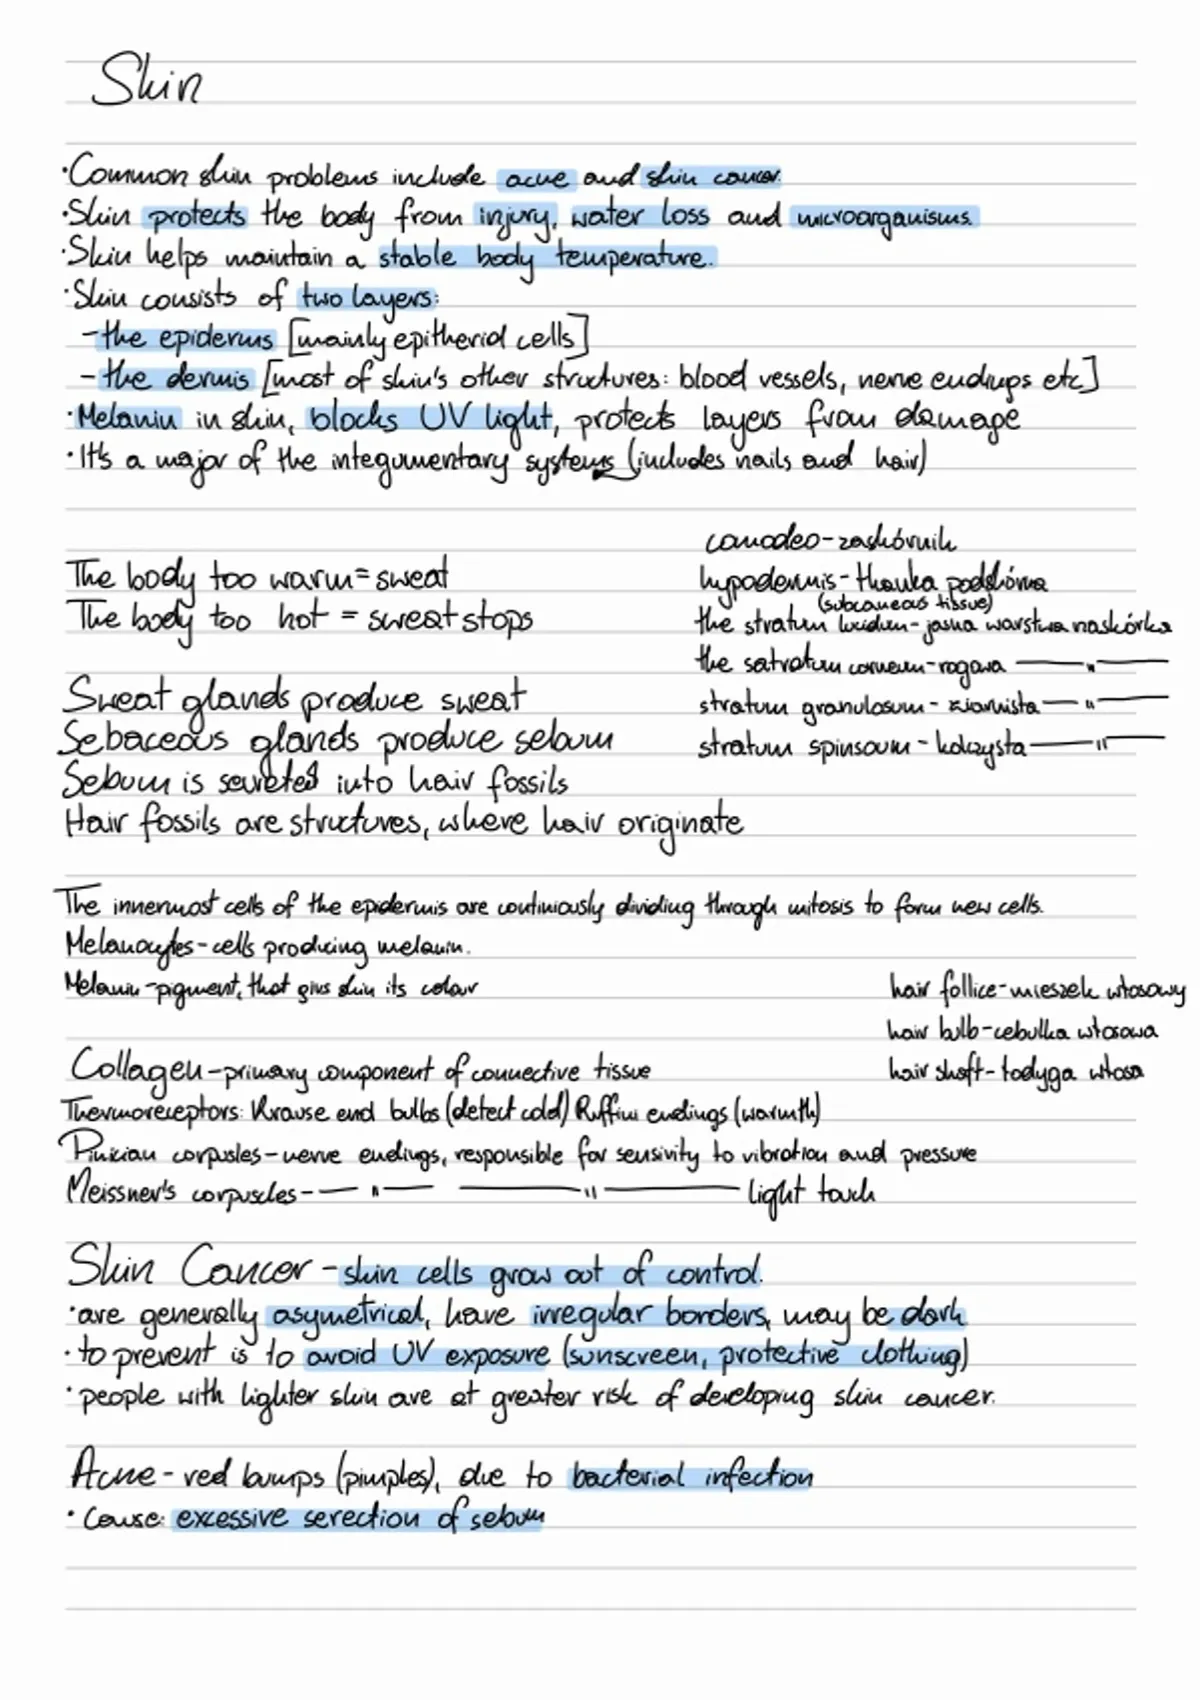 Skin
·Common skin problems include acne and skin cancer.
·Skin protects the body from injury, water loss and microorganisms.
·Skin helps maintain a stable body temperature.
·Skin consists of two layers:
-the epidermis [mainly epitherid cells]
-the dermis [most of skin's other structures: blood vessels, nerve endings etc]
·Melanin in skin, blocks UV light, protects layers from damage
·It's a major of the integumentary systems (includes nails and hair)
comodeo-zaskórnik
The body too warm=sweat
hypodermis-tkanka podskórna
(subcaneous tissue)
The body too hot = sweat stops
the stratum lucidum-jasna warstwa naskórka
the satratum corneum-rogowa —"—
Sweat glands produce sweat
stratum granulosum-ziarnista —"—
Sebaceous glands produce sebum
stratum spinsoum-kolczysta —"—
Sebum is secreted into hair fossils
Hair fossils are structures, where hair originate
The innermost cells of the epidermis are continiously dividing through mitosis to form new cells.
Melanocytes-cells producing melanin.
Melanin-pigment, that gives skin its colour
hair follice-mieszek włosowy
hair bulb-cebulka włosowa
Collagen-primary component of connective tissue
hair shaft-łodyga włosa
Thermoreceptors: Krause end bulbs (detect cold) Ruffini endings (warmth)
corpusles-nerve endings, responsible for sensivity to vibration and pressure
Meissner's corpuscles-—"— —"— light touch
Skin Cancer-skin cells grow out of control.
·are generally asymetrical, have irregular borders, may be dark
·to prevent is to avoid UV exposure (sunscreen, protective clothing)
·people with lighter skin are at greater risk of developing skin cancer.
Acne-red bumps (pimples), due to bacterial infection
·Cause: excessive serection of sebum